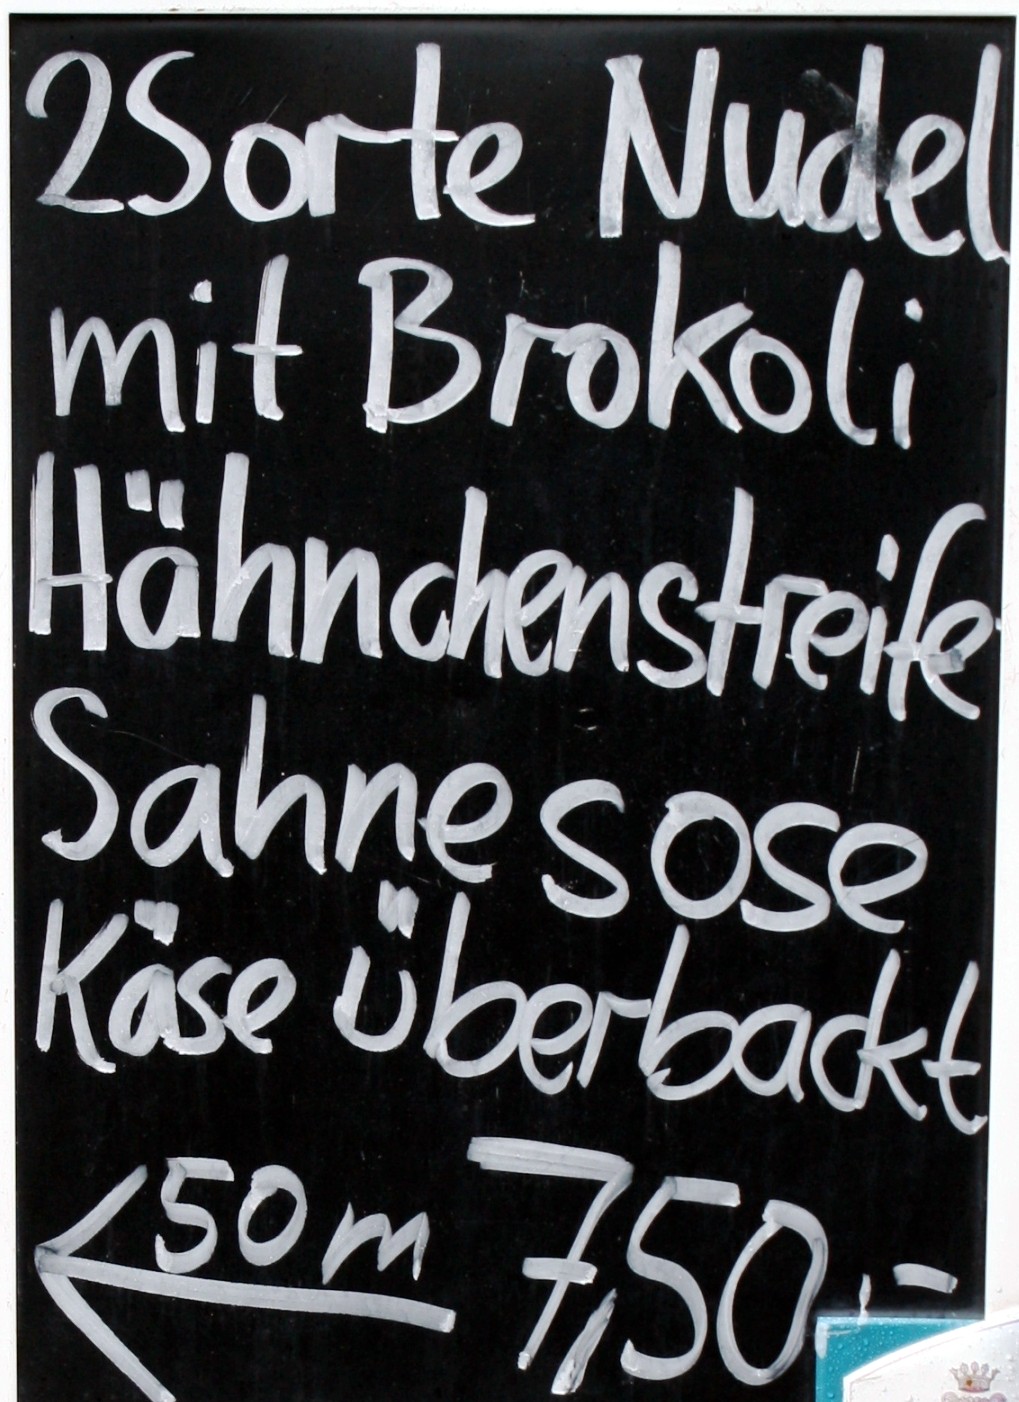 2 Sorte Nudel
mit Brokoli
Hähnchenstreife
Sahne sose
Käse überbackt
50 m 7,50,-